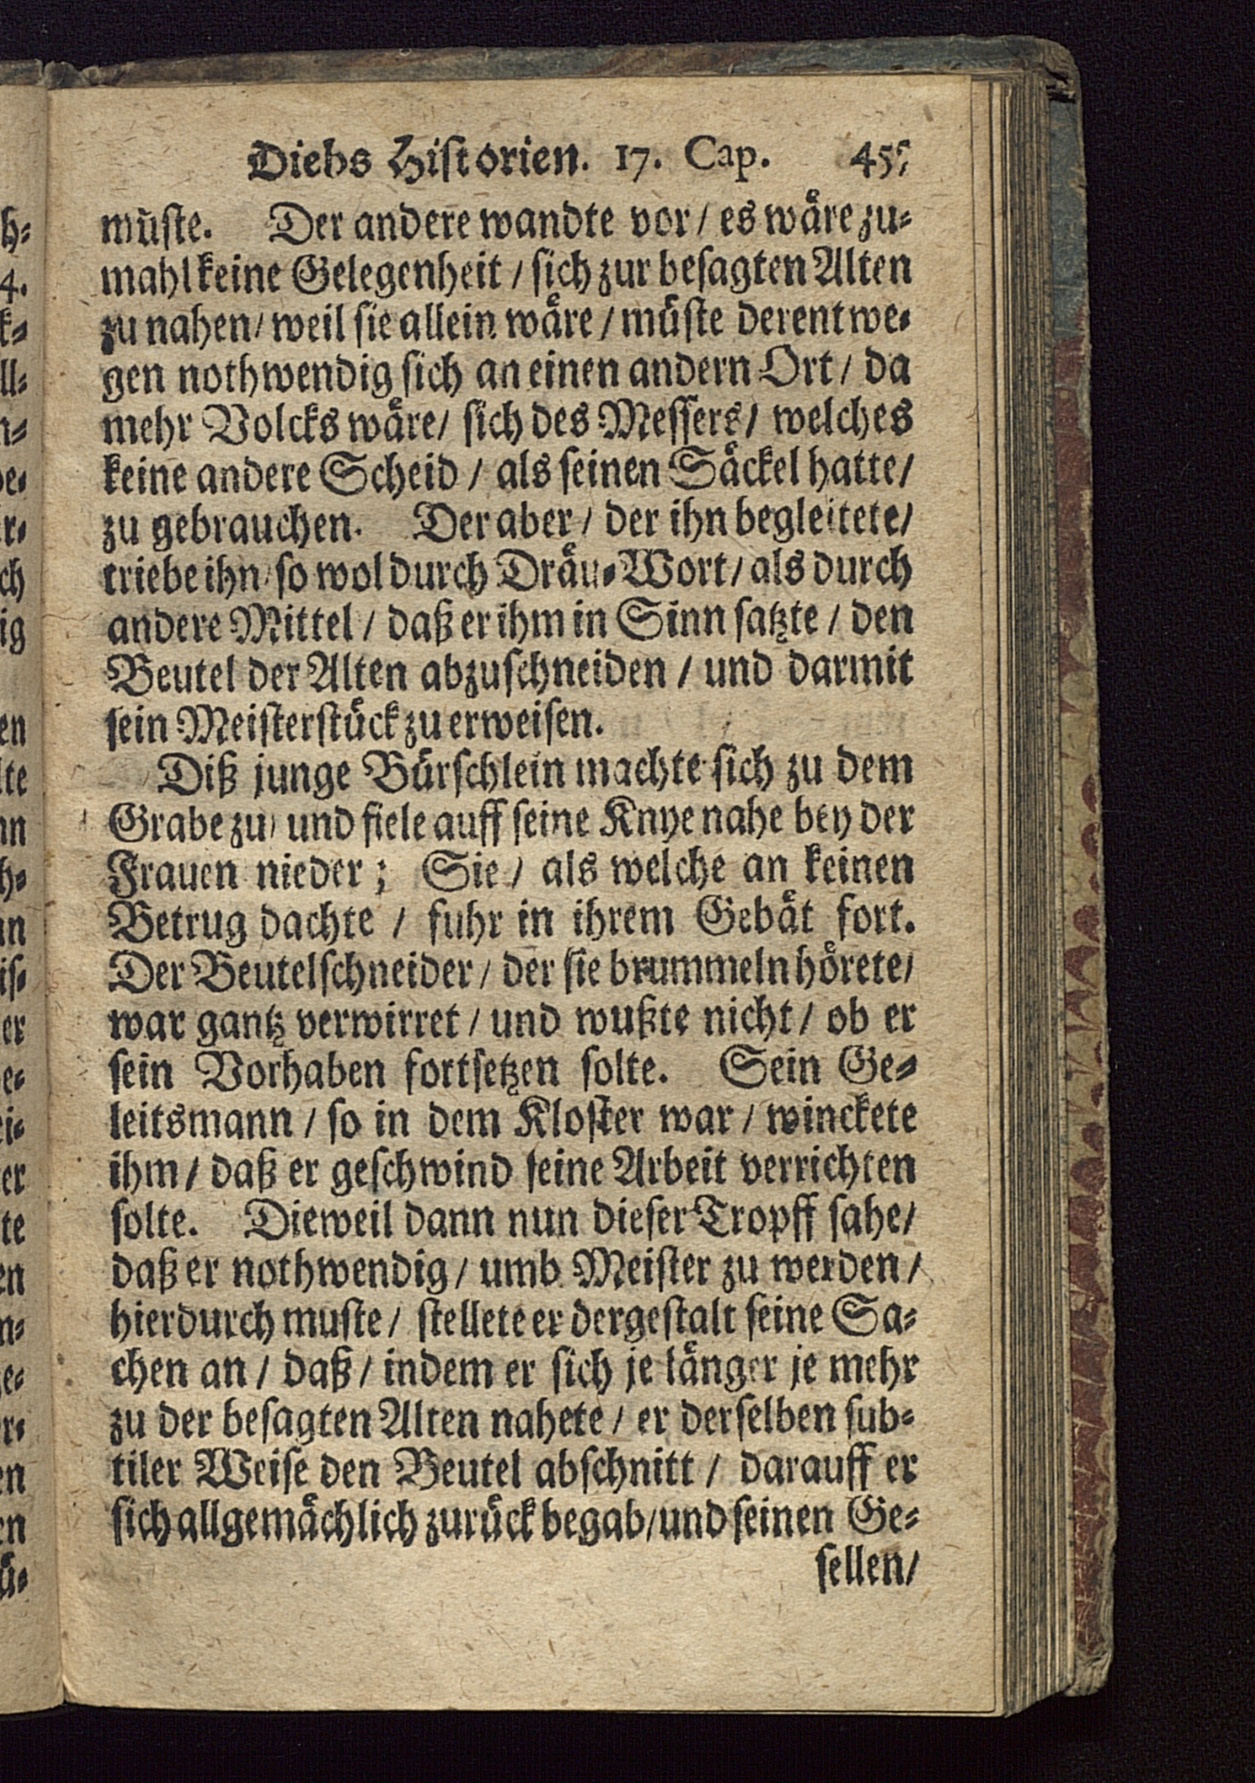 Diebs Historien. 17. Cap. 455
müste. Der andere wandte vor / es wäre zu-
mahl keine Gelegenheit / sich zur besagten Alten
zu nahen / weil sie allein wäre / müste derentwe-
gen nothwendig sich an einen andern Ort / da
mehr Volcks wäre / sich des Messers / welches
keine andere Scheid / als seinen Säckel hatte /
zu gebrauchen. Der aber / der ihn begleitete /
triebe ihn / so wol durch Dräu-Wort / als durch
andere Mittel / daß er ihm in Sinn satzte / den
Beutel der Alten abzuschneiden / und darmit
sein Meisterstück zu erweisen.
Diß junge Bürschlein machte sich zu dem
Grabe zu / und fiele auff seine Knye nahe bey der
Frauen nieder ; Sie / als welche an keinen
Betrug dachte / fuhr in ihrem Gebät fort.
Der Beutelschneider / der sie brummeln hörete /
war gantz verwirret / und wußte nicht / ob er
sein Vorhaben fortsetzen solte. Sein Ge-
leitsmann / so in dem Kloster war / winckete
ihm / daß er geschwind seine Arbeit verrichten
solte. Dieweil dann nun dieser Tropff sahe /
daß er nothwendig / umb Meister zu werden /
hierdurch muste / stellete er dergestalt seine Sa-
chen an / daß / indem er sich je länger je mehr
zu der besagten Alten nahete / er derselben sub-
tiler Weise den Beutel abschnitt / darauff er
sich allgemächlich zurück begab / und seinen Ge-
sellen /